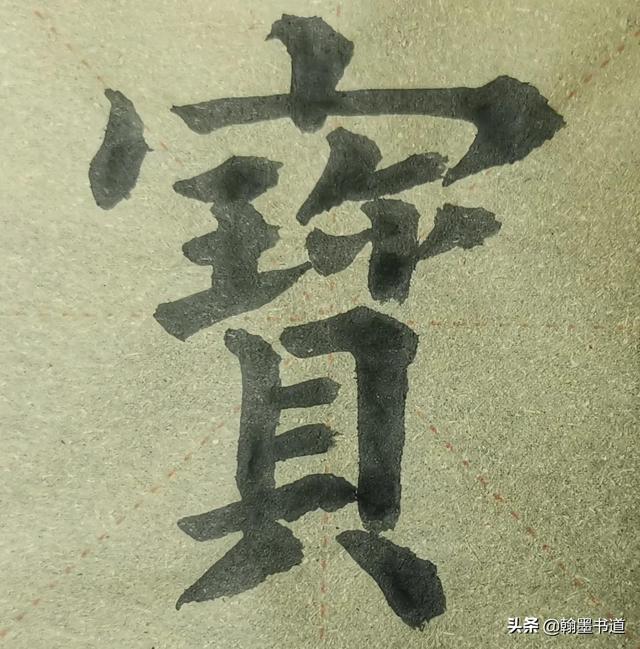 寳
头条 @翰墨书道